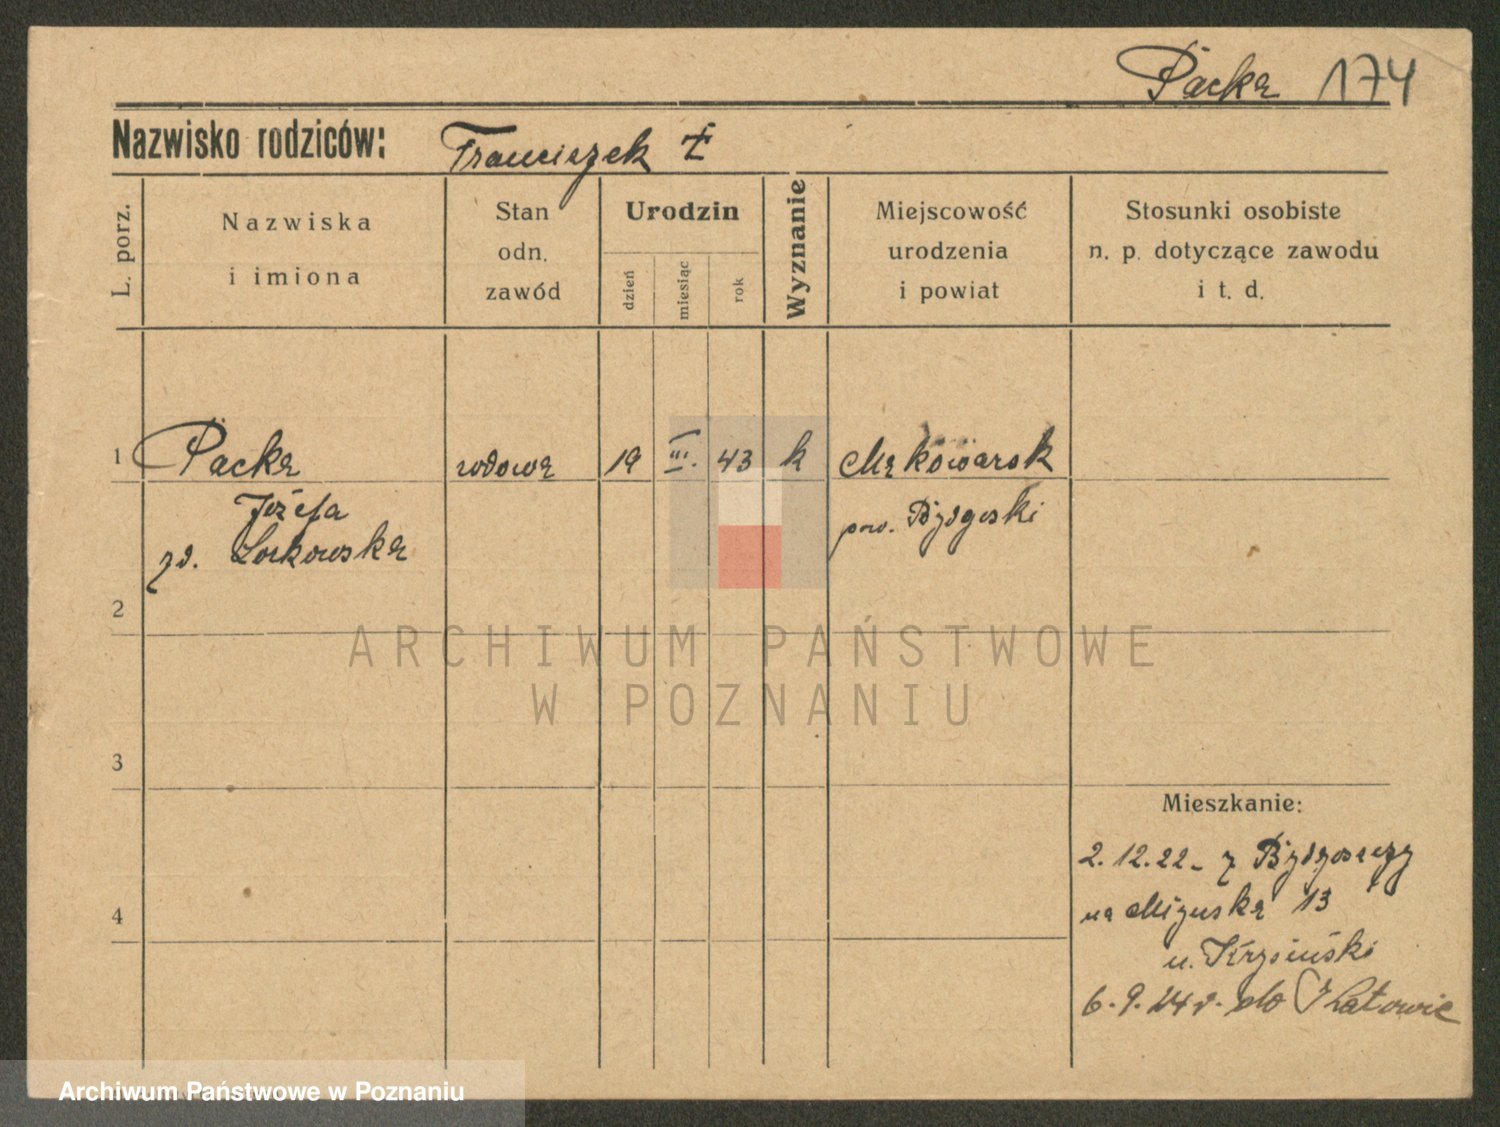 Packa 174
Nazwisko rodziców: Franciszek
L. porz.
Nazwiska
i imiona
Stan
odn.
zawód
Urodzin
dzień
miesiąc
rok
Wyznanie
Miejscowość
urodzenia
i powiat
Stosunki osobiste
n. p. dotyczące zawodu
i t. d.
1 Packa wdowa 19 III. 43 k Mąkowarsk
Józefa pow. Bydgoski
zd. Lorkowska
2
3
4
Mieszkanie:
2.12.22 - z Bydgoszczy
na 13
u. Krysiński
6.9.24 r. do Katowic
ARCHIWUM PAŃSTWOWE
W POZNANIU
Archiwum Państwowe w Poznaniu